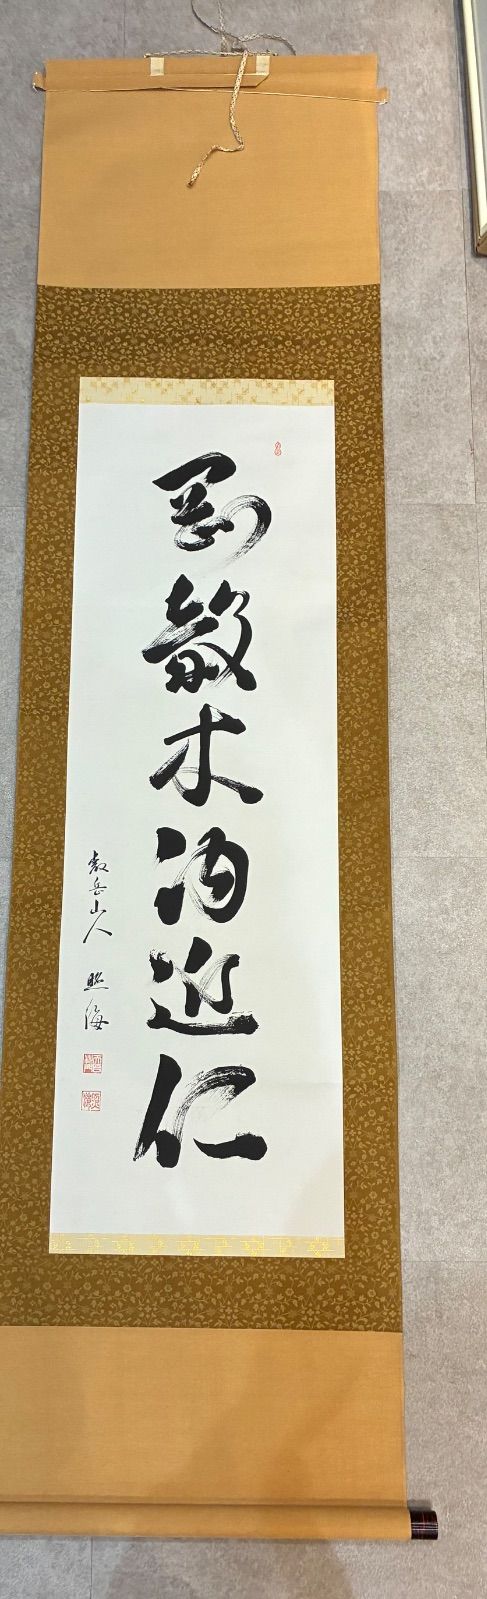 剛毅木訥近仁
叡岳山人 照海